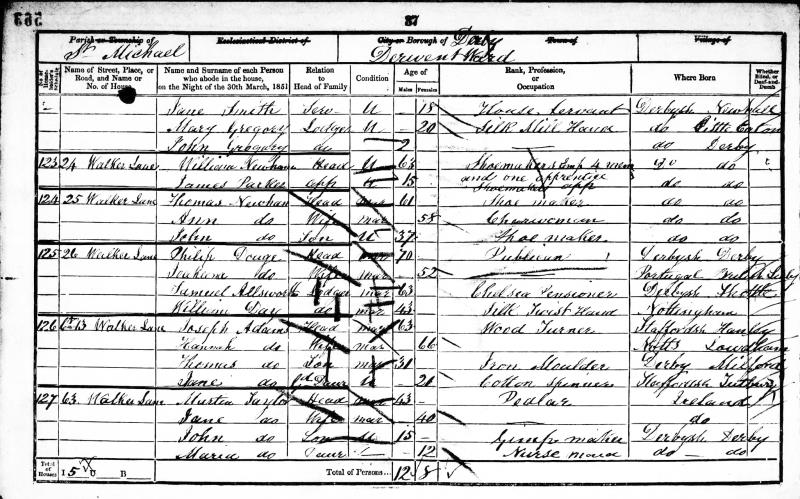 563
37
Parish or Township of Ecclesiastical District of City or Borough of Derby Town of Village of
St Michael Derwent Ward
No. of House-holder's Schedule Name of Street, Place, or Road, and Name or No. of House Name and Surname of each Person who abode in the house, on the Night of the 30th March, 1851 Relation to Head of Family Condition Age of Males Females Rank, Profession, or Occupation Where Born Whether Blind, or Deaf-and-Dumb
Jane Smith Serv U 18 House Servant Derbysh Newhall
Mary Gregory Lodger U 20 Silk Mill Hand do Little Eaton
John Gregory do 2 do Derby
123 24 Walker Lane William Head U 63 Shoemaker Emp 4 men do do
and one apprentice
James Parker app U 15 Shoemaker app do do
124 25 Walker Lane Thomas Head mar 61 Shoe maker do do
Ann do Wife mar 58 Charwoman do do
John do Son U 37 Shoe maker do do
125 26 Walker Lane Philip Head mar 70 Publican Derbysh Derby
do Wife mar 52 Portugal British
Samuel Allsworth Lodger mar 63 Chelsea Pensioner Derbysh
William Day do mar 43 Silk Twist Hand Nottingham
126 13 Walker Lane Joseph Adam Head mar 63 Wood Turner Staffordsh Hanley
Hannah do Wife mar 66 Notts Lowdham
Thomas do Son mar 31 Iron Moulder Derby Milford
Jane do Daur U 21 Cotton Spinner Staffordsh Tutbury
127 63 Walker Lane Taylor Head mar 43 Pedlar Ireland
Jane do Wife mar 40 do
John do Son U 15 Gimp maker Derbysh Derby
Maria do Daur 12 Nurse maid do do
Total of Houses I 5 U B Total of Persons 12 8